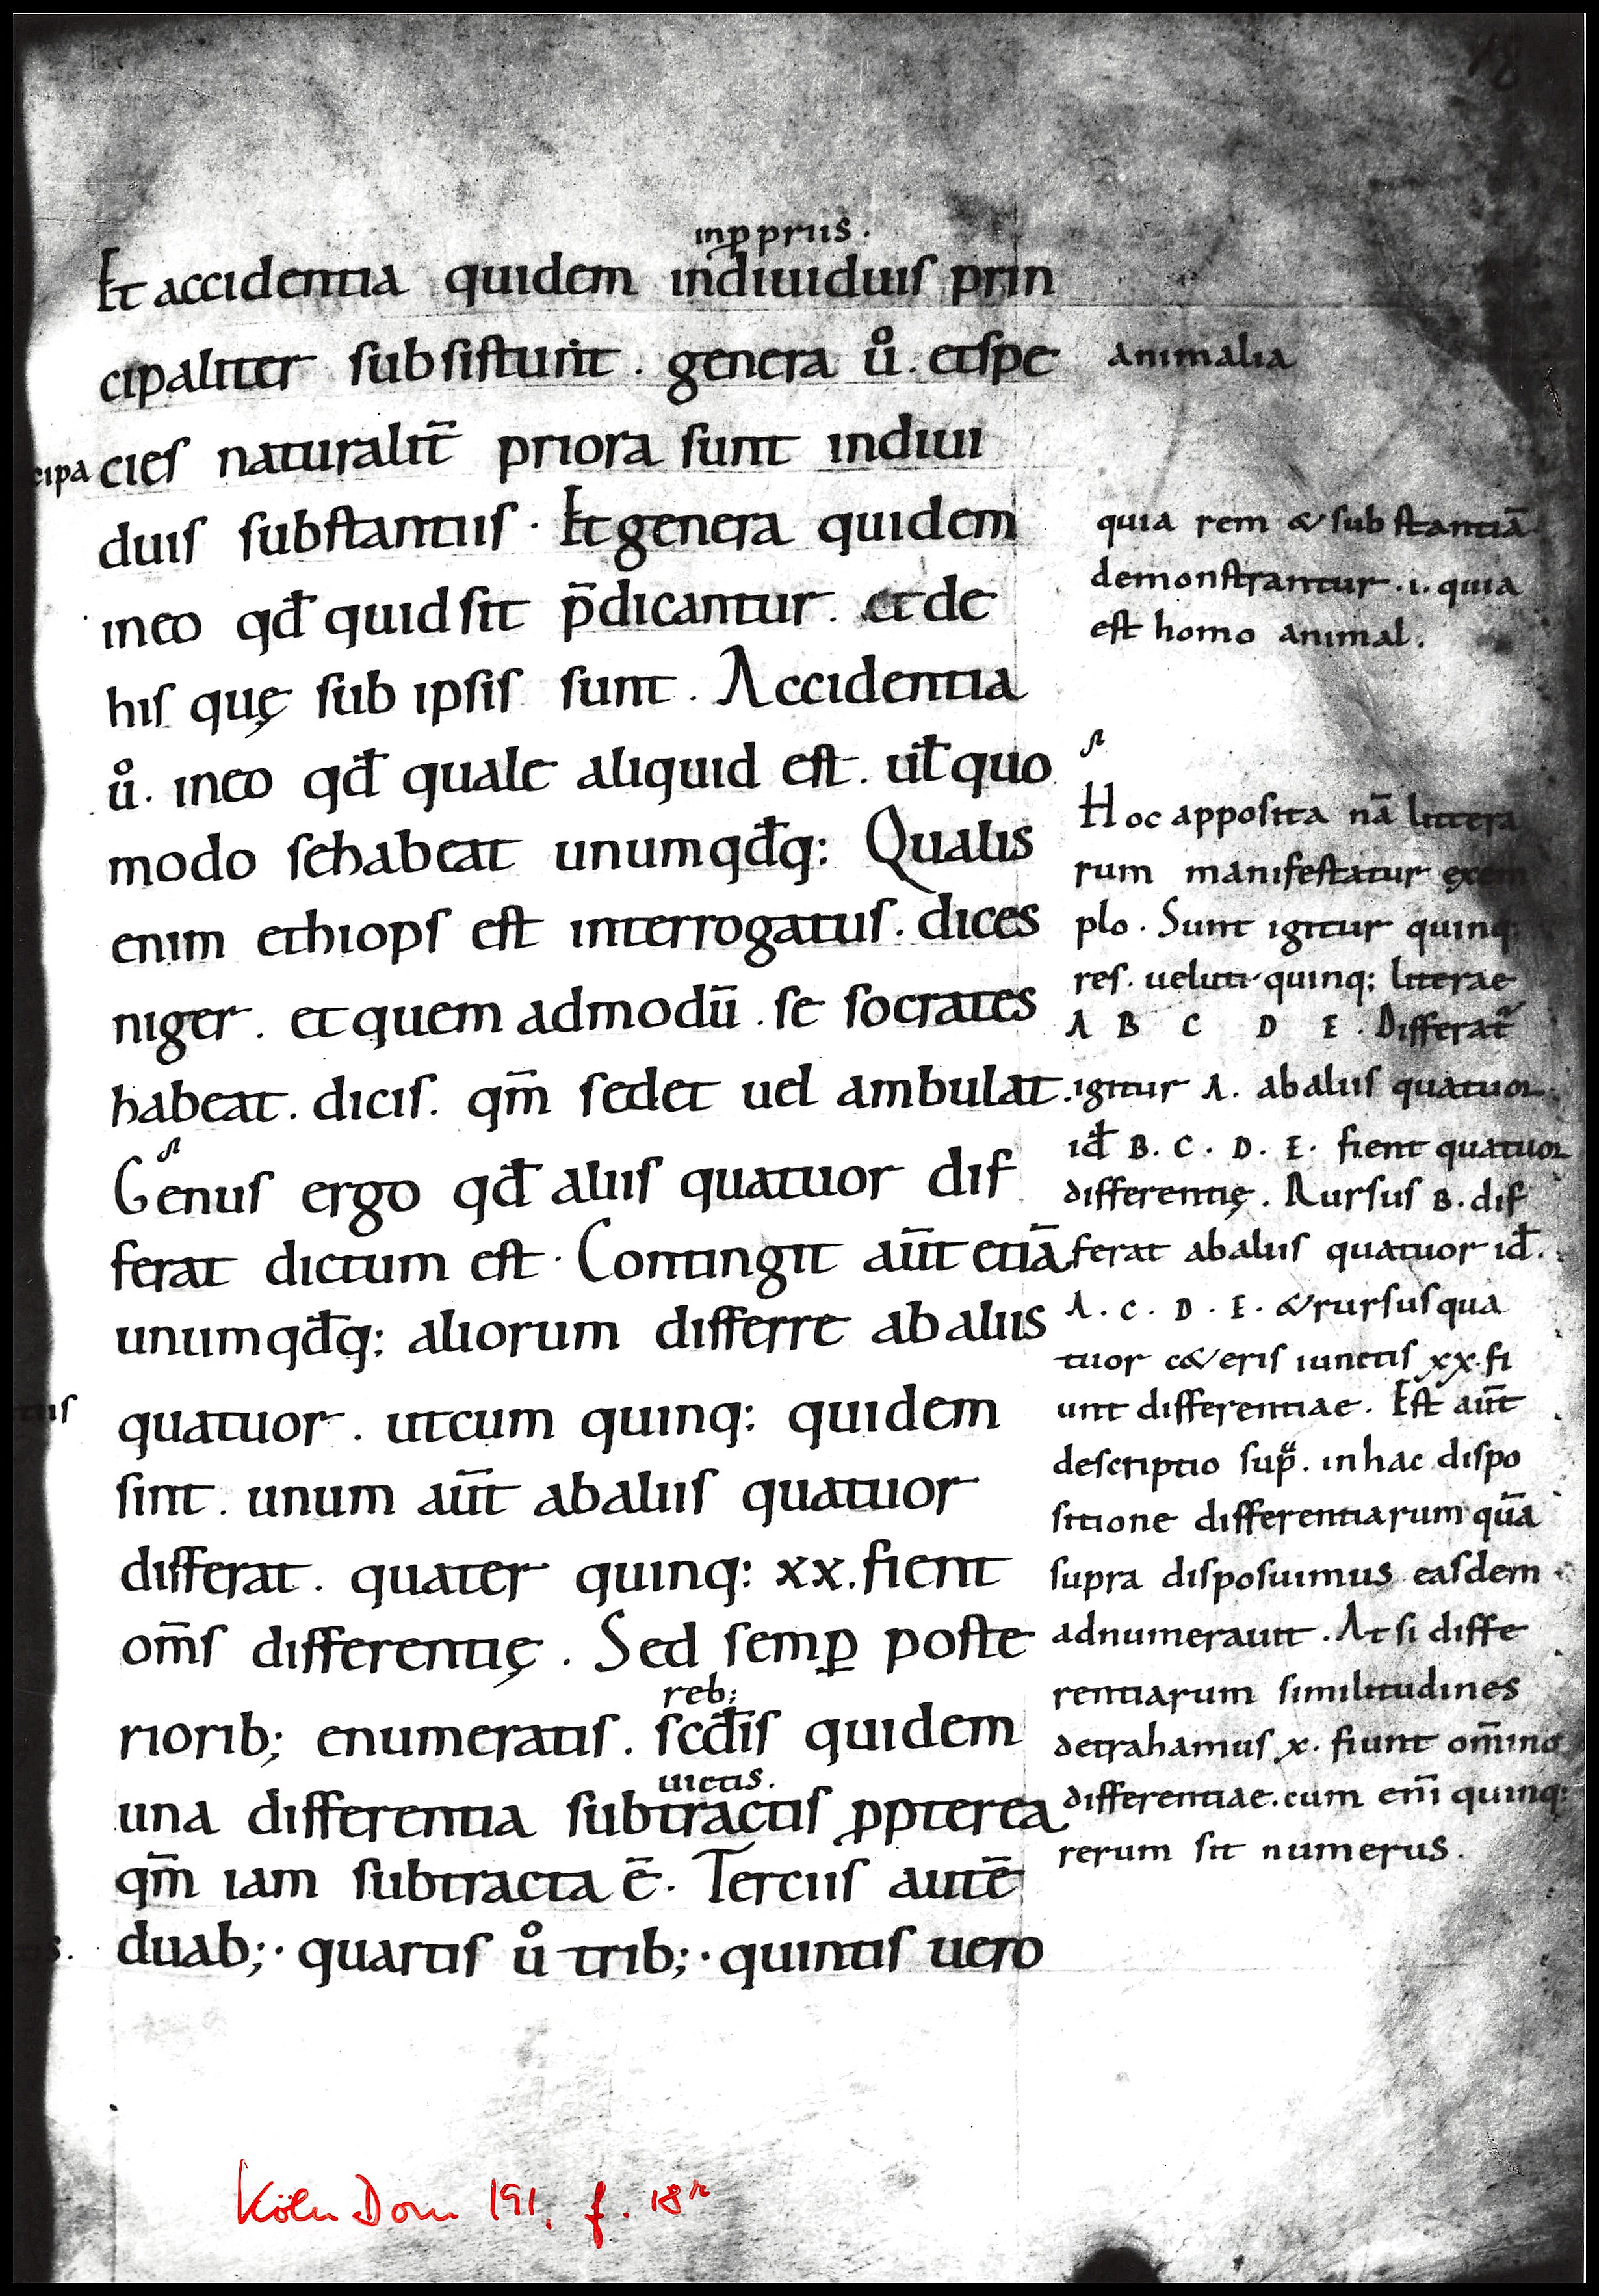 18
inꝓpriis.
Et accidentia quidem indiuiduis prin
cipaliter subsistunt. genera ů. et spe
cies naturalit̄ priora sunt indiui
duis substantiis. Et genera quidem
in eo qđ quid sit p̄dicantur. et de
his quę sub ipsis sunt. Accidentia
ů. in eo qđ quale aliquid est. uł quo
modo se habeat unumqđq: Qualis
enim ethiops est interrogatus. dices
niger. et quem admodū. se socrates
habeat. dicis. qm̄ sedet uel ambulat.
Genus ergo qđ aliis quatuor dif
ferat dictum est. Contingit aūt etiā
unumqđq: aliorum differre ab aliis
quatuor. ut cum quinq: quidem
sint. unum aūt ab aliis quatuor
differat. quater quinq: xx. fient
om̄s differentię. Sed semꝑ poste
reb;
riorib; enumeratis. scđis quidem
uictis.
una differentia subtractis ꝓpterea
qm̄ iam subtracta ē. Terciis autē
duab;. quartis ů trib;. quintis uero
cipa
tis.
animalia
quia rem & substantiā
demonstrantur .i. quia
est homo animal.
Hoc apposita nā littera
rum manifestatur exem
plo. Sunt igitur quinq:
res. ueluti quinq; literae
A B C D E. Differat
igitur A. ab aliis quatuor.
iđ B. C. D. E. fient quatuor
differentię. Rursus B. dif
ferat ab aliis quatuor iđ.
A. C. D. E. & rursus qua
tuor c&eris iunctis xx. fi
unt differentiae. Est aūt
descriptio sup̈. in hac dispo
sitione differentiarum quā
supra disposuimus easdem
adnumerauit. At si diffe
rentiarum similitudines
detrahamus x. fiunt om̄ino
differentiae. cum eni̅ quinq:
rerum sit numerus.
Köln Dom 191, f. 18r